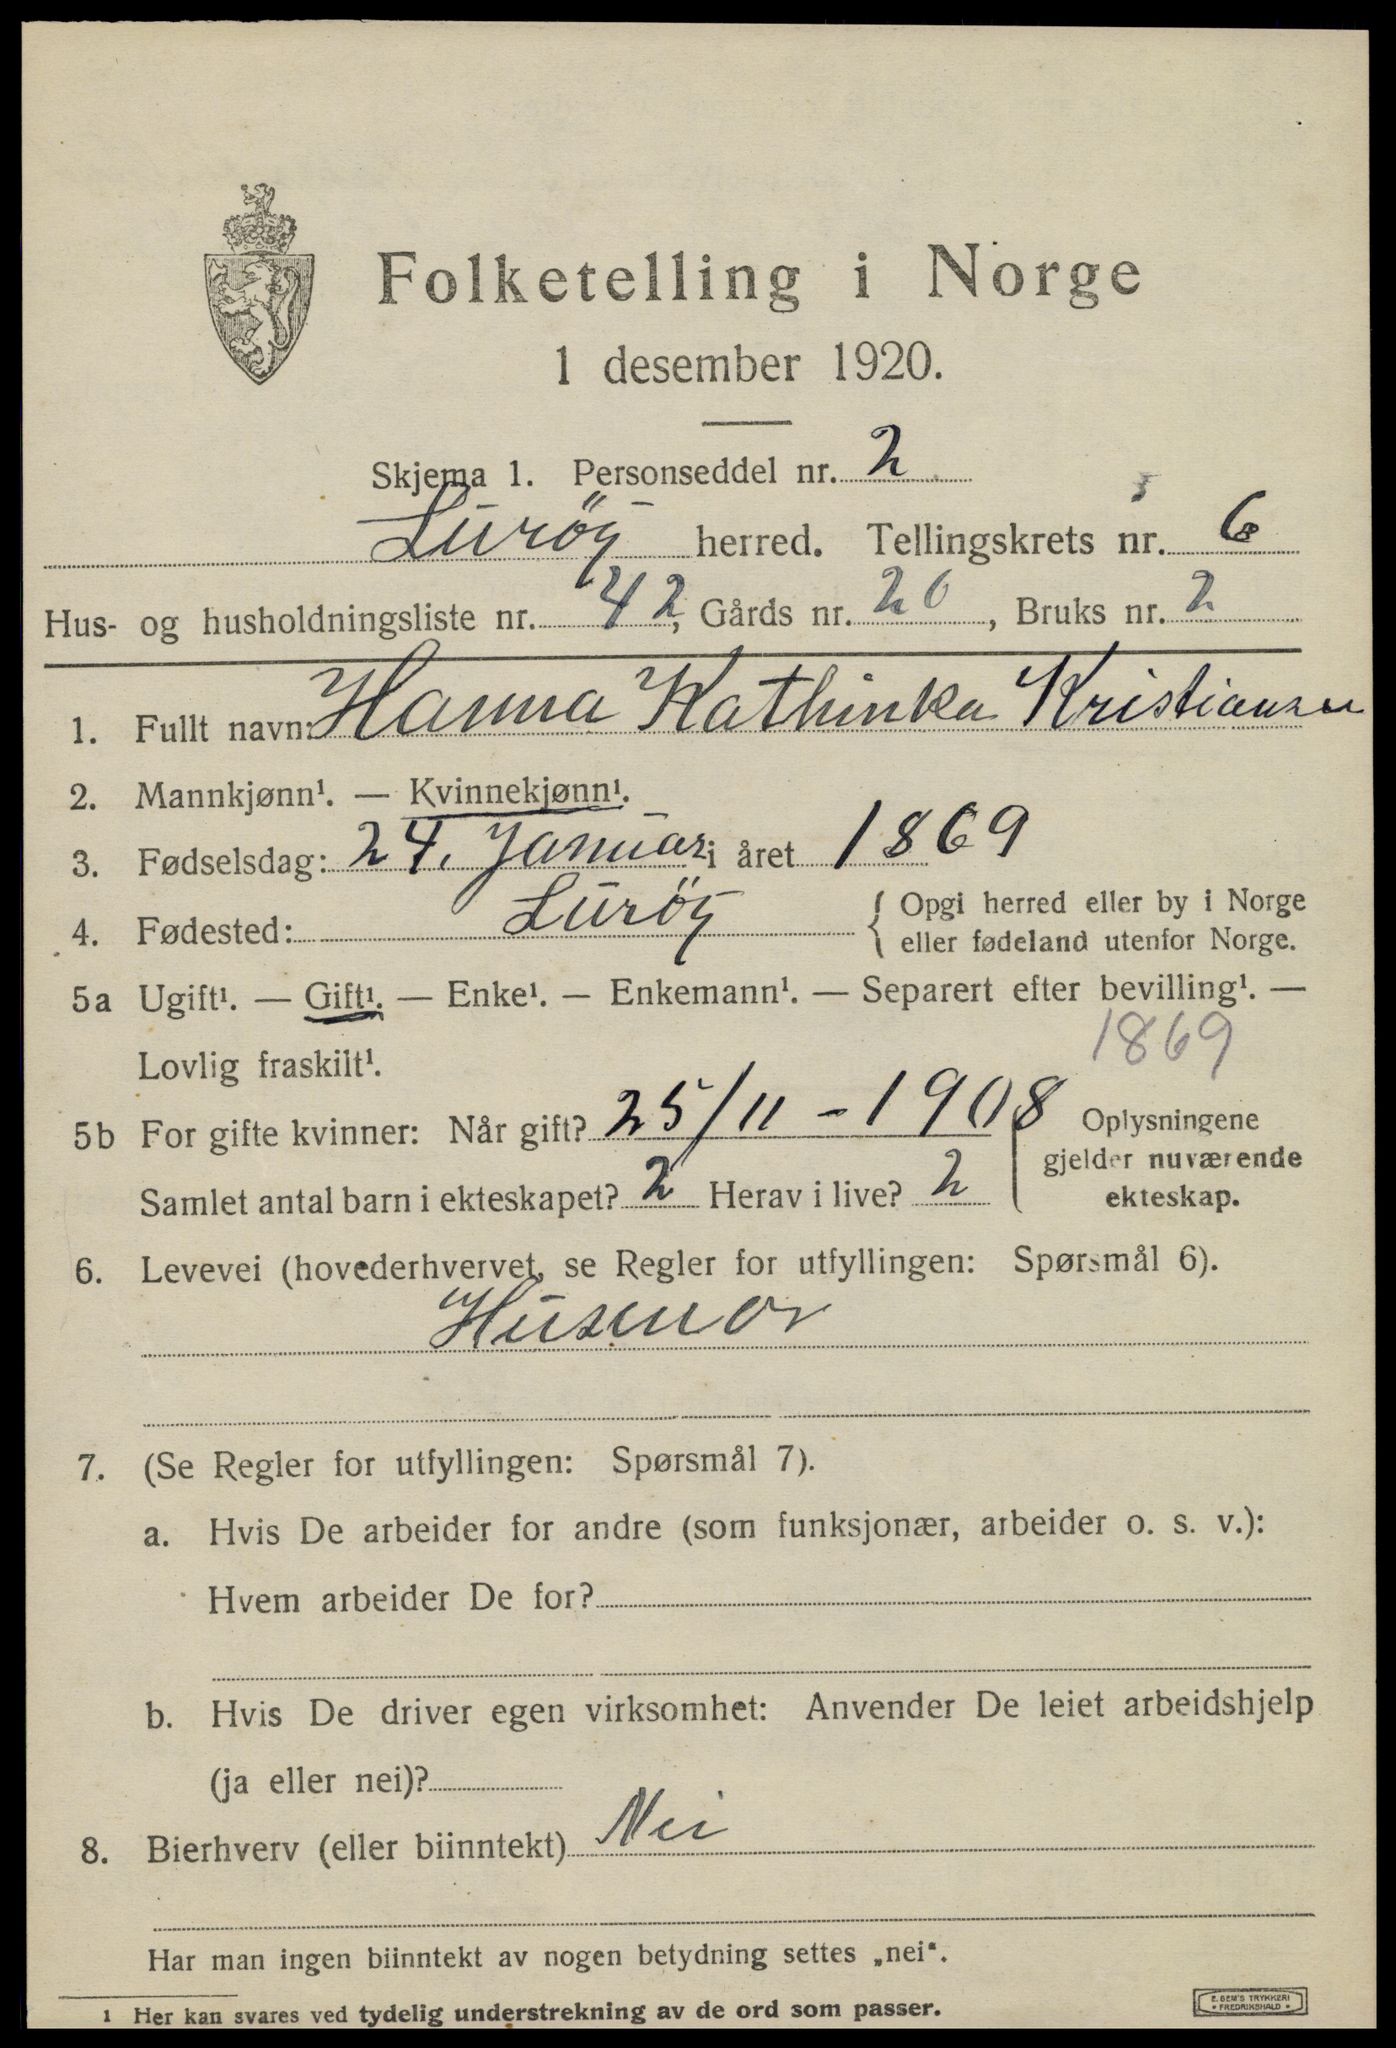 Folketelling i Norge
1 desember 1920.
Skjema 1. Personseddel nr. 2
Lurøy herred. Tellingskrets nr. 6
Hus- og husholdningsliste nr. 42, Gårds nr. 20, Bruks nr. 2
1. Fullt navn: Hanna Kathinka Kristiansen
2. Mannkjønn¹. — Kvinnekjønn¹.
3. Fødselsdag: 24. Januar i året 1869
4. Fødested: Lurøy { Opgi herred eller by i Norge
eller fødeland utenfor Norge.
5a Ugift¹. — Gift¹. — Enke¹. — Enkemann¹. — Separert efter bevilling¹. —
Lovlig fraskilt¹. 1869
5b For gifte kvinner: Når gift? 25/11 - 1908 Oplysningene
gjelder nuværende
Samlet antal barn i ekteskapet? 2 Herav i live? 2 ekteskap.
6. Levevei (hovederhvervet, se Regler for utfyllingen: Spørsmål 6).
Husmor
7. (Se Regler for utfyllingen: Spørsmål 7).
a. Hvis De arbeider for andre (som funksjonær, arbeider o. s. v.):
Hvem arbeider De for?
b. Hvis De driver egen virksomhet: Anvender De leiet arbeidshjelp
(ja eller nei)?
8. Bierhverv (eller biinntekt) Nei
Har man ingen biinntekt av nogen betydning settes „nei“.
1 Her kan svares ved tydelig understrekning av de ord som passer.
E. SEM'S TRYKKERI
• FREDRIKSHALD •